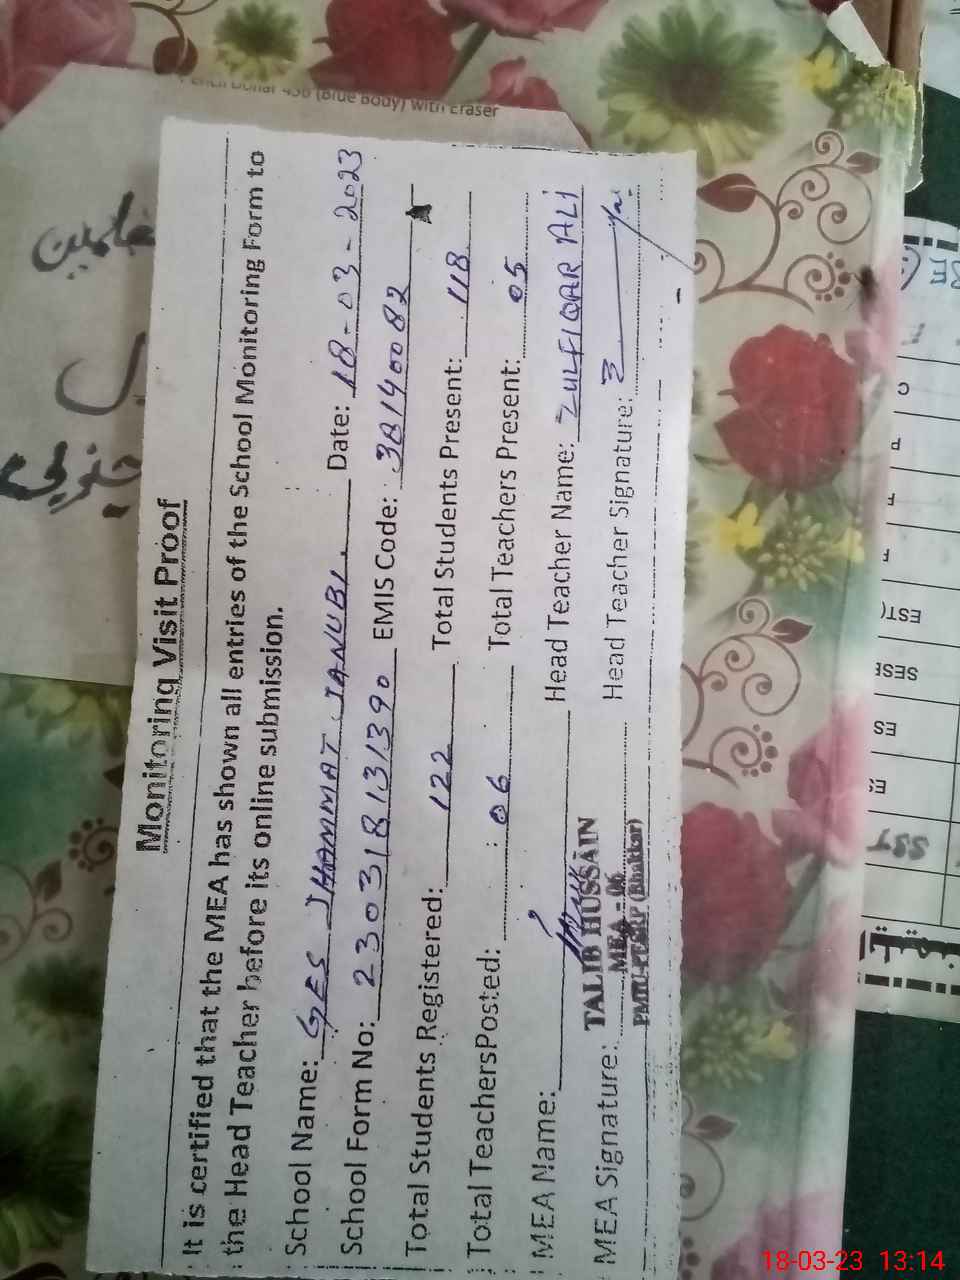 Monitoring Visit Proof
It is certified that the MEA has shown all entries of the School Monitoring Form to
the Head Teacher before its online submission.
School Name: GES JHAMMAT JANUBI. Date: 18-03-2023
School Form No: 230318131390 EMIS Code: 38140082
Total Students Registered: 122 Total Students Present: 118
Total TeachersPosted: 06 Total Teachers Present: 05
MEA Name: Head Teacher Name: ZULFIQAR ALI
MEA Signature: Head Teacher Signature:
TALIB HUSSAIN
MEA - 06
PMIU-PESRP (Bhakkar)
(Blue Body) with Eraser
جنوبی
C
P
F
F
EST(
SESE
ES
ES
SST
18-03-23 13:14